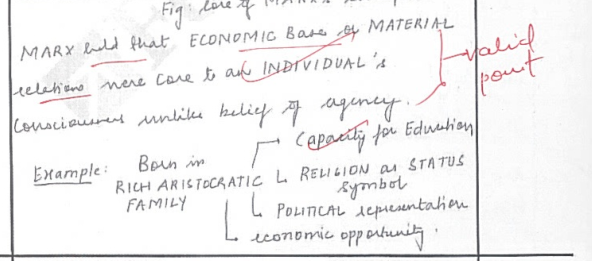 Fig: core of MARX's
MARX held that ECONOMIC Base of MATERIAL
relations were core to an INDIVIDUAL's
Consciousness unlike belief of agency.
valid
point
Example: Born in
RICH ARISTOCRATIC
FAMILY
Capacity for Education
RELIGION as STATUS
Symbol
POLITICAL representation
economic opportunity.